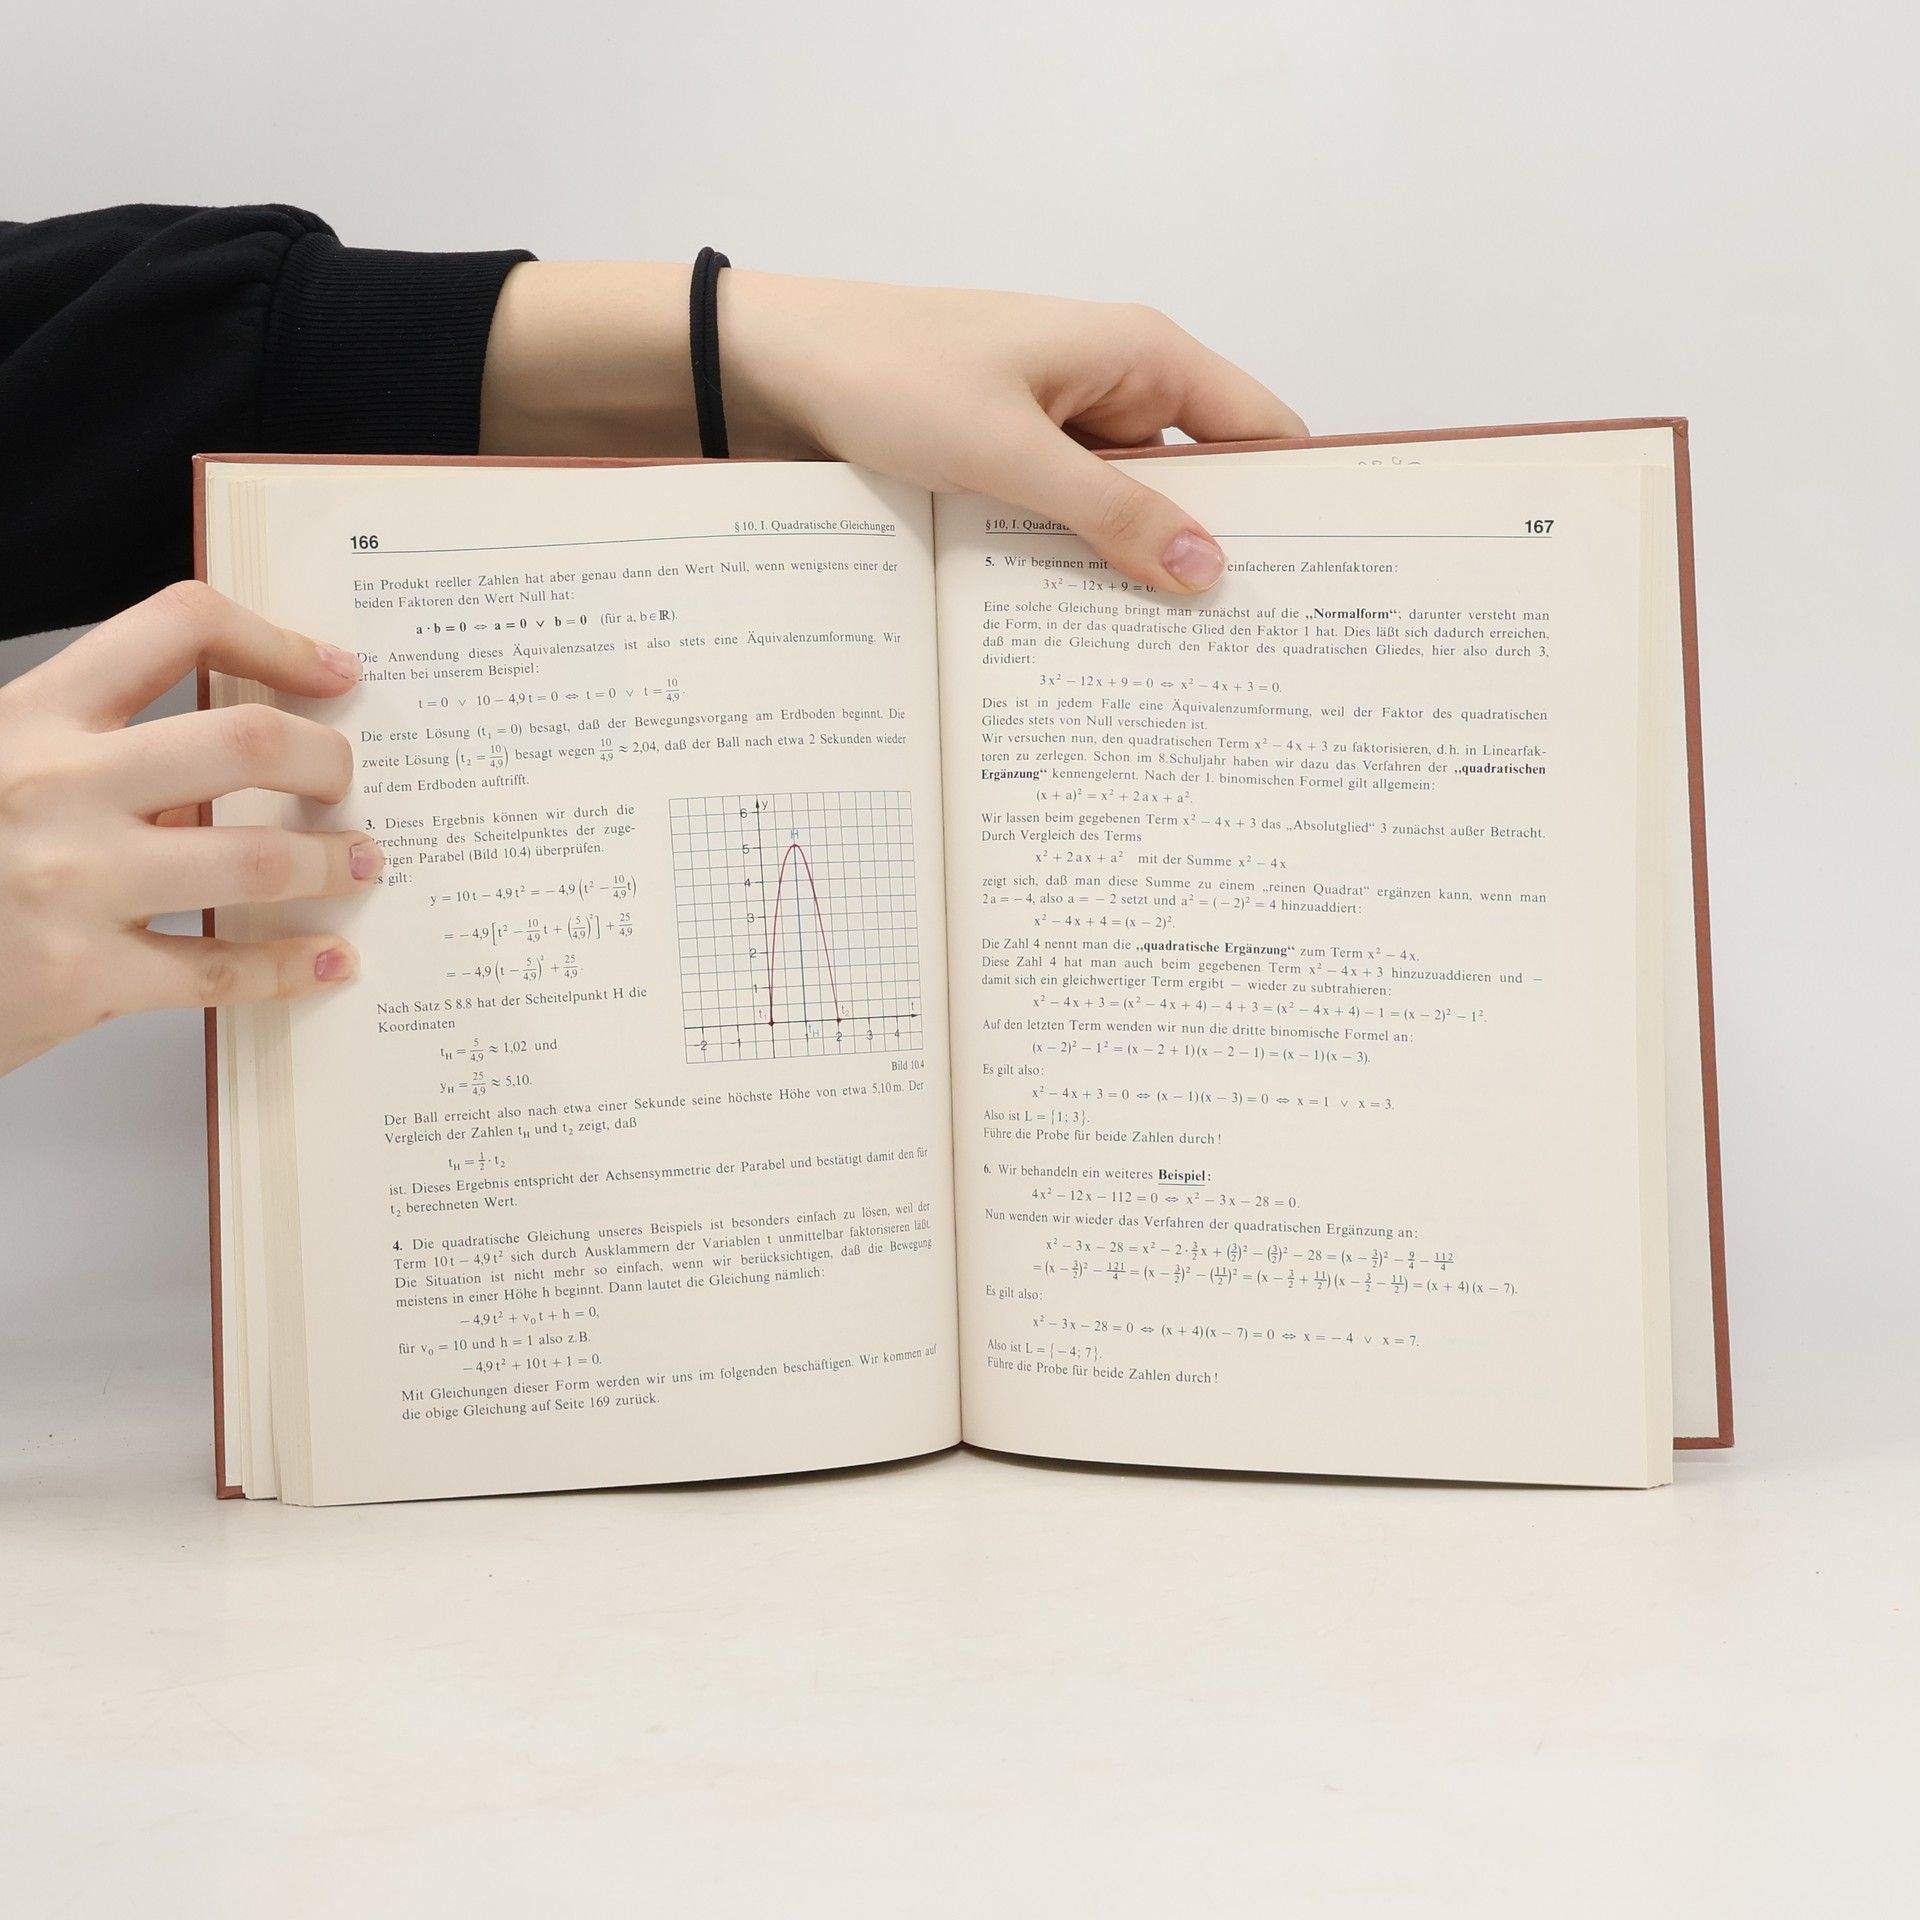 166
§ 10, I. Quadratische Gleichungen
Ein Produkt reeller Zahlen hat aber genau dann den Wert Null, wenn wenigstens einer der
beiden Faktoren den Wert Null hat:
a · b = 0 ⇔ a = 0 ∨ b = 0 (für a, b ∈ ℝ).
Die Anwendung dieses Äquivalenzsatzes ist also stets eine Äquivalenzumformung. Wir
erhalten bei unserem Beispiel:
t = 0 ∨ 10 − 4,9 t = 0 ⇔ t = 0 ∨ t = 10/4,9.
Die erste Lösung (t₁ = 0) besagt, daß der Bewegungsvorgang am Erdboden beginnt. Die
zweite Lösung (t₂ = 10/4,9) besagt wegen 10/4,9 ≈ 2,04, daß der Ball nach etwa 2 Sekunden wieder
auf dem Erdboden auftrifft.
3. Dieses Ergebnis können wir durch die
erechnung des Scheitelpunktes der zuge-
rigen Parabel (Bild 10.4) überprüfen.
s gilt:
y = 10 t − 4,9 t² = − 4,9 (t² − 10/4,9 t)
= − 4,9 [t² − 10/4,9 t + (5/4,9)²] + 25/4,9
= − 4,9 (t − 5/4,9)² + 25/4,9.
Nach Satz S 8.8 hat der Scheitelpunkt H die
Koordinaten
t_H = 5/4,9 ≈ 1,02 und
y_H = 25/4,9 ≈ 5,10.
6 y
H
5
4
3
2
1
t₁ t₂ t
−2 −1 1 t_H 2 3 4
Bild 10.4
Der Ball erreicht also nach etwa einer Sekunde seine höchste Höhe von etwa 5,10 m. Der
Vergleich der Zahlen t_H und t₂ zeigt, daß
t_H = 1/2 · t₂
ist. Dieses Ergebnis entspricht der Achsensymmetrie der Parabel und bestätigt damit den für
t₂ berechneten Wert.
4. Die quadratische Gleichung unseres Beispiels ist besonders einfach zu lösen, weil der
Term 10 t − 4,9 t² sich durch Ausklammern der Variablen t unmittelbar faktorisieren läßt.
Die Situation ist nicht mehr so einfach, wenn wir berücksichtigen, daß die Bewegung
meistens in einer Höhe h beginnt. Dann lautet die Gleichung nämlich:
− 4,9 t² + v₀ t + h = 0,
für v₀ = 10 und h = 1 also z.B.
− 4,9 t² + 10 t + 1 = 0.
Mit Gleichungen dieser Form werden wir uns im folgenden beschäftigen. Wir kommen auf
die obige Gleichung auf Seite 169 zurück.
§ 10, I. Quadrat
167
5. Wir beginnen mit einfacheren Zahlenfaktoren:
3x² − 12x + 9 = 0.
Eine solche Gleichung bringt man zunächst auf die „Normalform“; darunter versteht man
die Form, in der das quadratische Glied den Faktor 1 hat. Dies läßt sich dadurch erreichen,
daß man die Gleichung durch den Faktor des quadratischen Gliedes, hier also durch 3,
dividiert:
3x² − 12x + 9 = 0 ⇔ x² − 4x + 3 = 0.
Dies ist in jedem Falle eine Äquivalenzumformung, weil der Faktor des quadratischen
Gliedes stets von Null verschieden ist.
Wir versuchen nun, den quadratischen Term x² − 4x + 3 zu faktorisieren, d.h. in Linearfak-
toren zu zerlegen. Schon im 8. Schuljahr haben wir dazu das Verfahren der „quadratischen
Ergänzung“ kennengelernt. Nach der 1. binomischen Formel gilt allgemein:
(x + a)² = x² + 2ax + a².
Wir lassen beim gegebenen Term x² − 4x + 3 das „Absolutglied“ 3 zunächst außer Betracht.
Durch Vergleich des Terms
x² + 2ax + a² mit der Summe x² − 4x
zeigt sich, daß man diese Summe zu einem „reinen Quadrat“ ergänzen kann, wenn man
2a = − 4, also a = − 2 setzt und a² = (− 2)² = 4 hinzuaddiert:
x² − 4x + 4 = (x − 2)².
Die Zahl 4 nennt man die „quadratische Ergänzung“ zum Term x² − 4x.
Diese Zahl 4 hat man auch beim gegebenen Term x² − 4x + 3 hinzuzuaddieren und −
damit sich ein gleichwertiger Term ergibt − wieder zu subtrahieren:
x² − 4x + 3 = (x² − 4x + 4) − 4 + 3 = (x² − 4x + 4) − 1 = (x − 2)² − 1².
Auf den letzten Term wenden wir nun die dritte binomische Formel an:
(x − 2)² − 1² = (x − 2 + 1)(x − 2 − 1) = (x − 1)(x − 3).
Es gilt also:
x² − 4x + 3 = 0 ⇔ (x − 1)(x − 3) = 0 ⇔ x = 1 ∨ x = 3.
Also ist L = {1; 3}.
Führe die Probe für beide Zahlen durch!
6. Wir behandeln ein weiteres Beispiel:
4x² − 12x − 112 = 0 ⇔ x² − 3x − 28 = 0.
Nun wenden wir wieder das Verfahren der quadratischen Ergänzung an:
x² − 3x − 28 = x² − 2 · 3/2 x + (3/2)² − (3/2)² − 28 = (x − 3/2)² − 9/4 − 112/4
= (x − 3/2)² − 121/4 = (x − 3/2)² − (11/2)² = (x − 3/2 + 11/2)(x − 3/2 − 11/2) = (x + 4)(x − 7).
Es gilt also:
x² − 3x − 28 = 0 ⇔ (x + 4)(x − 7) = 0 ⇔ x = − 4 ∨ x = 7.
Also ist L = {− 4; 7}.
Führe die Probe für beide Zahlen durch!